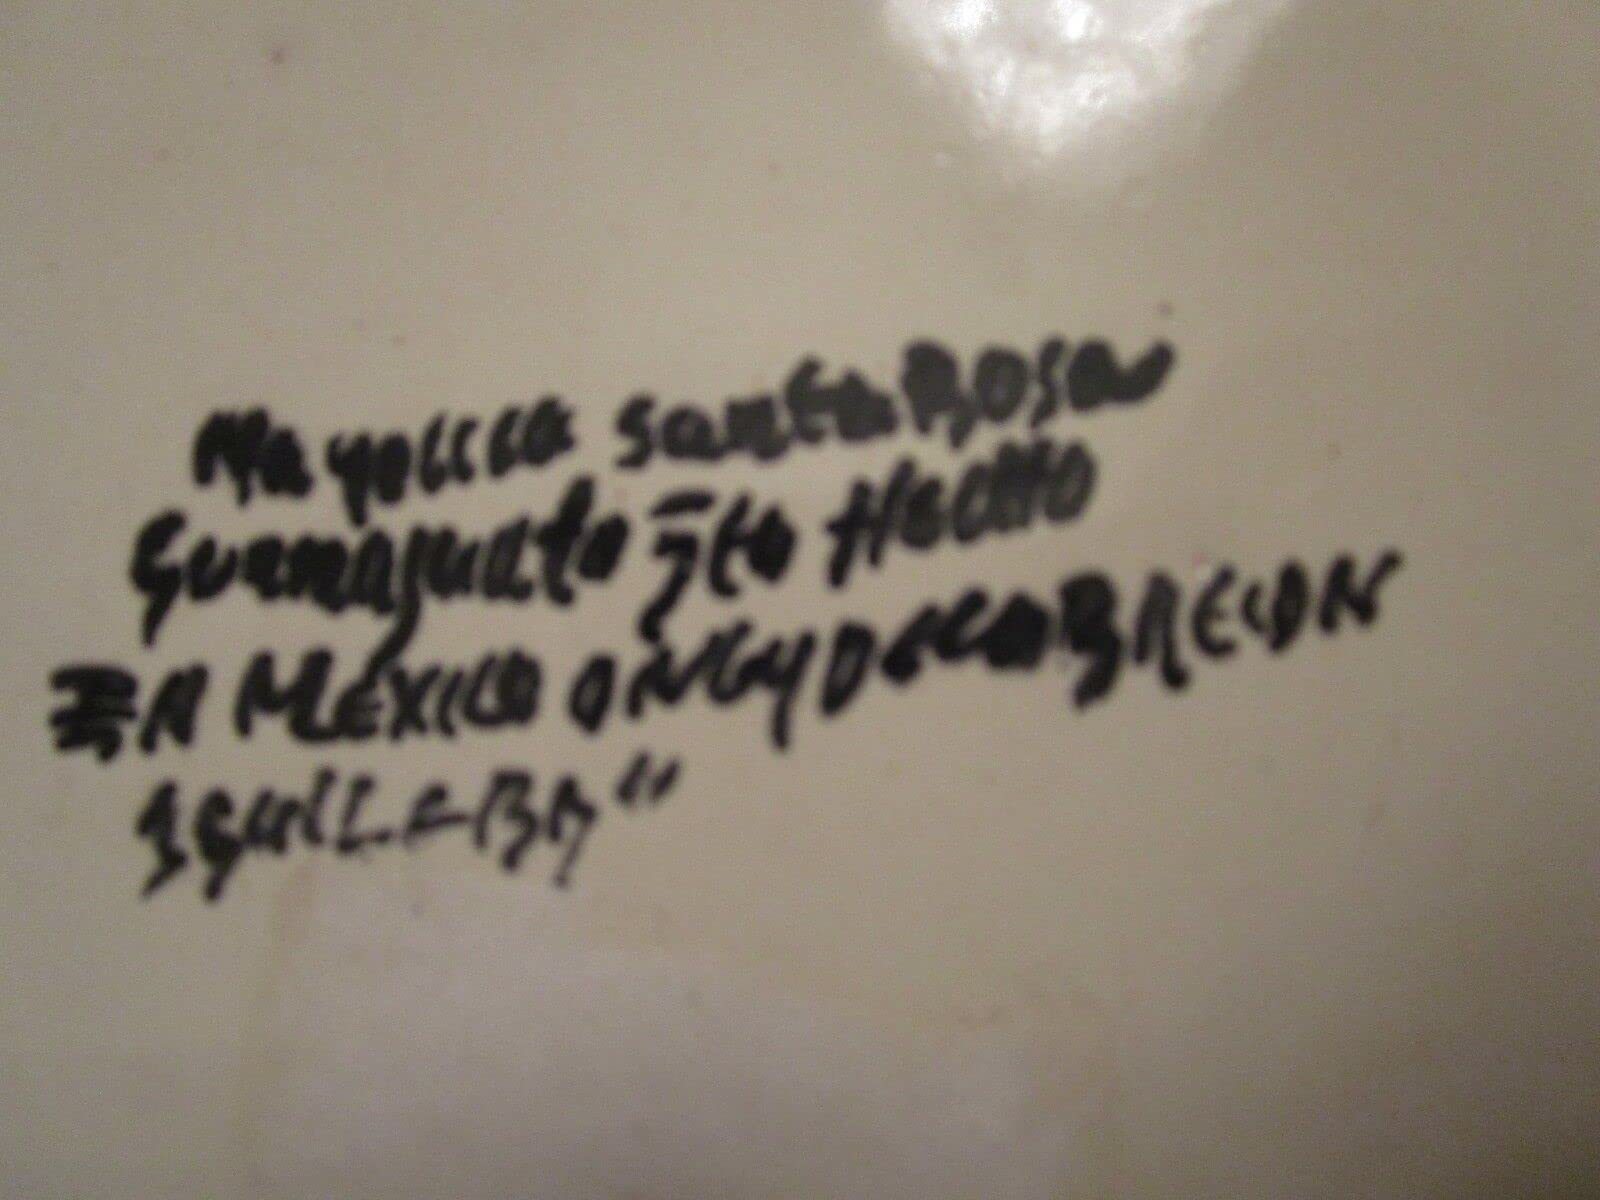 Mayolica Santa Rosa
Guanajuato gto Hecho
En MEXICO ONLY DECORACION
AguiLERA"